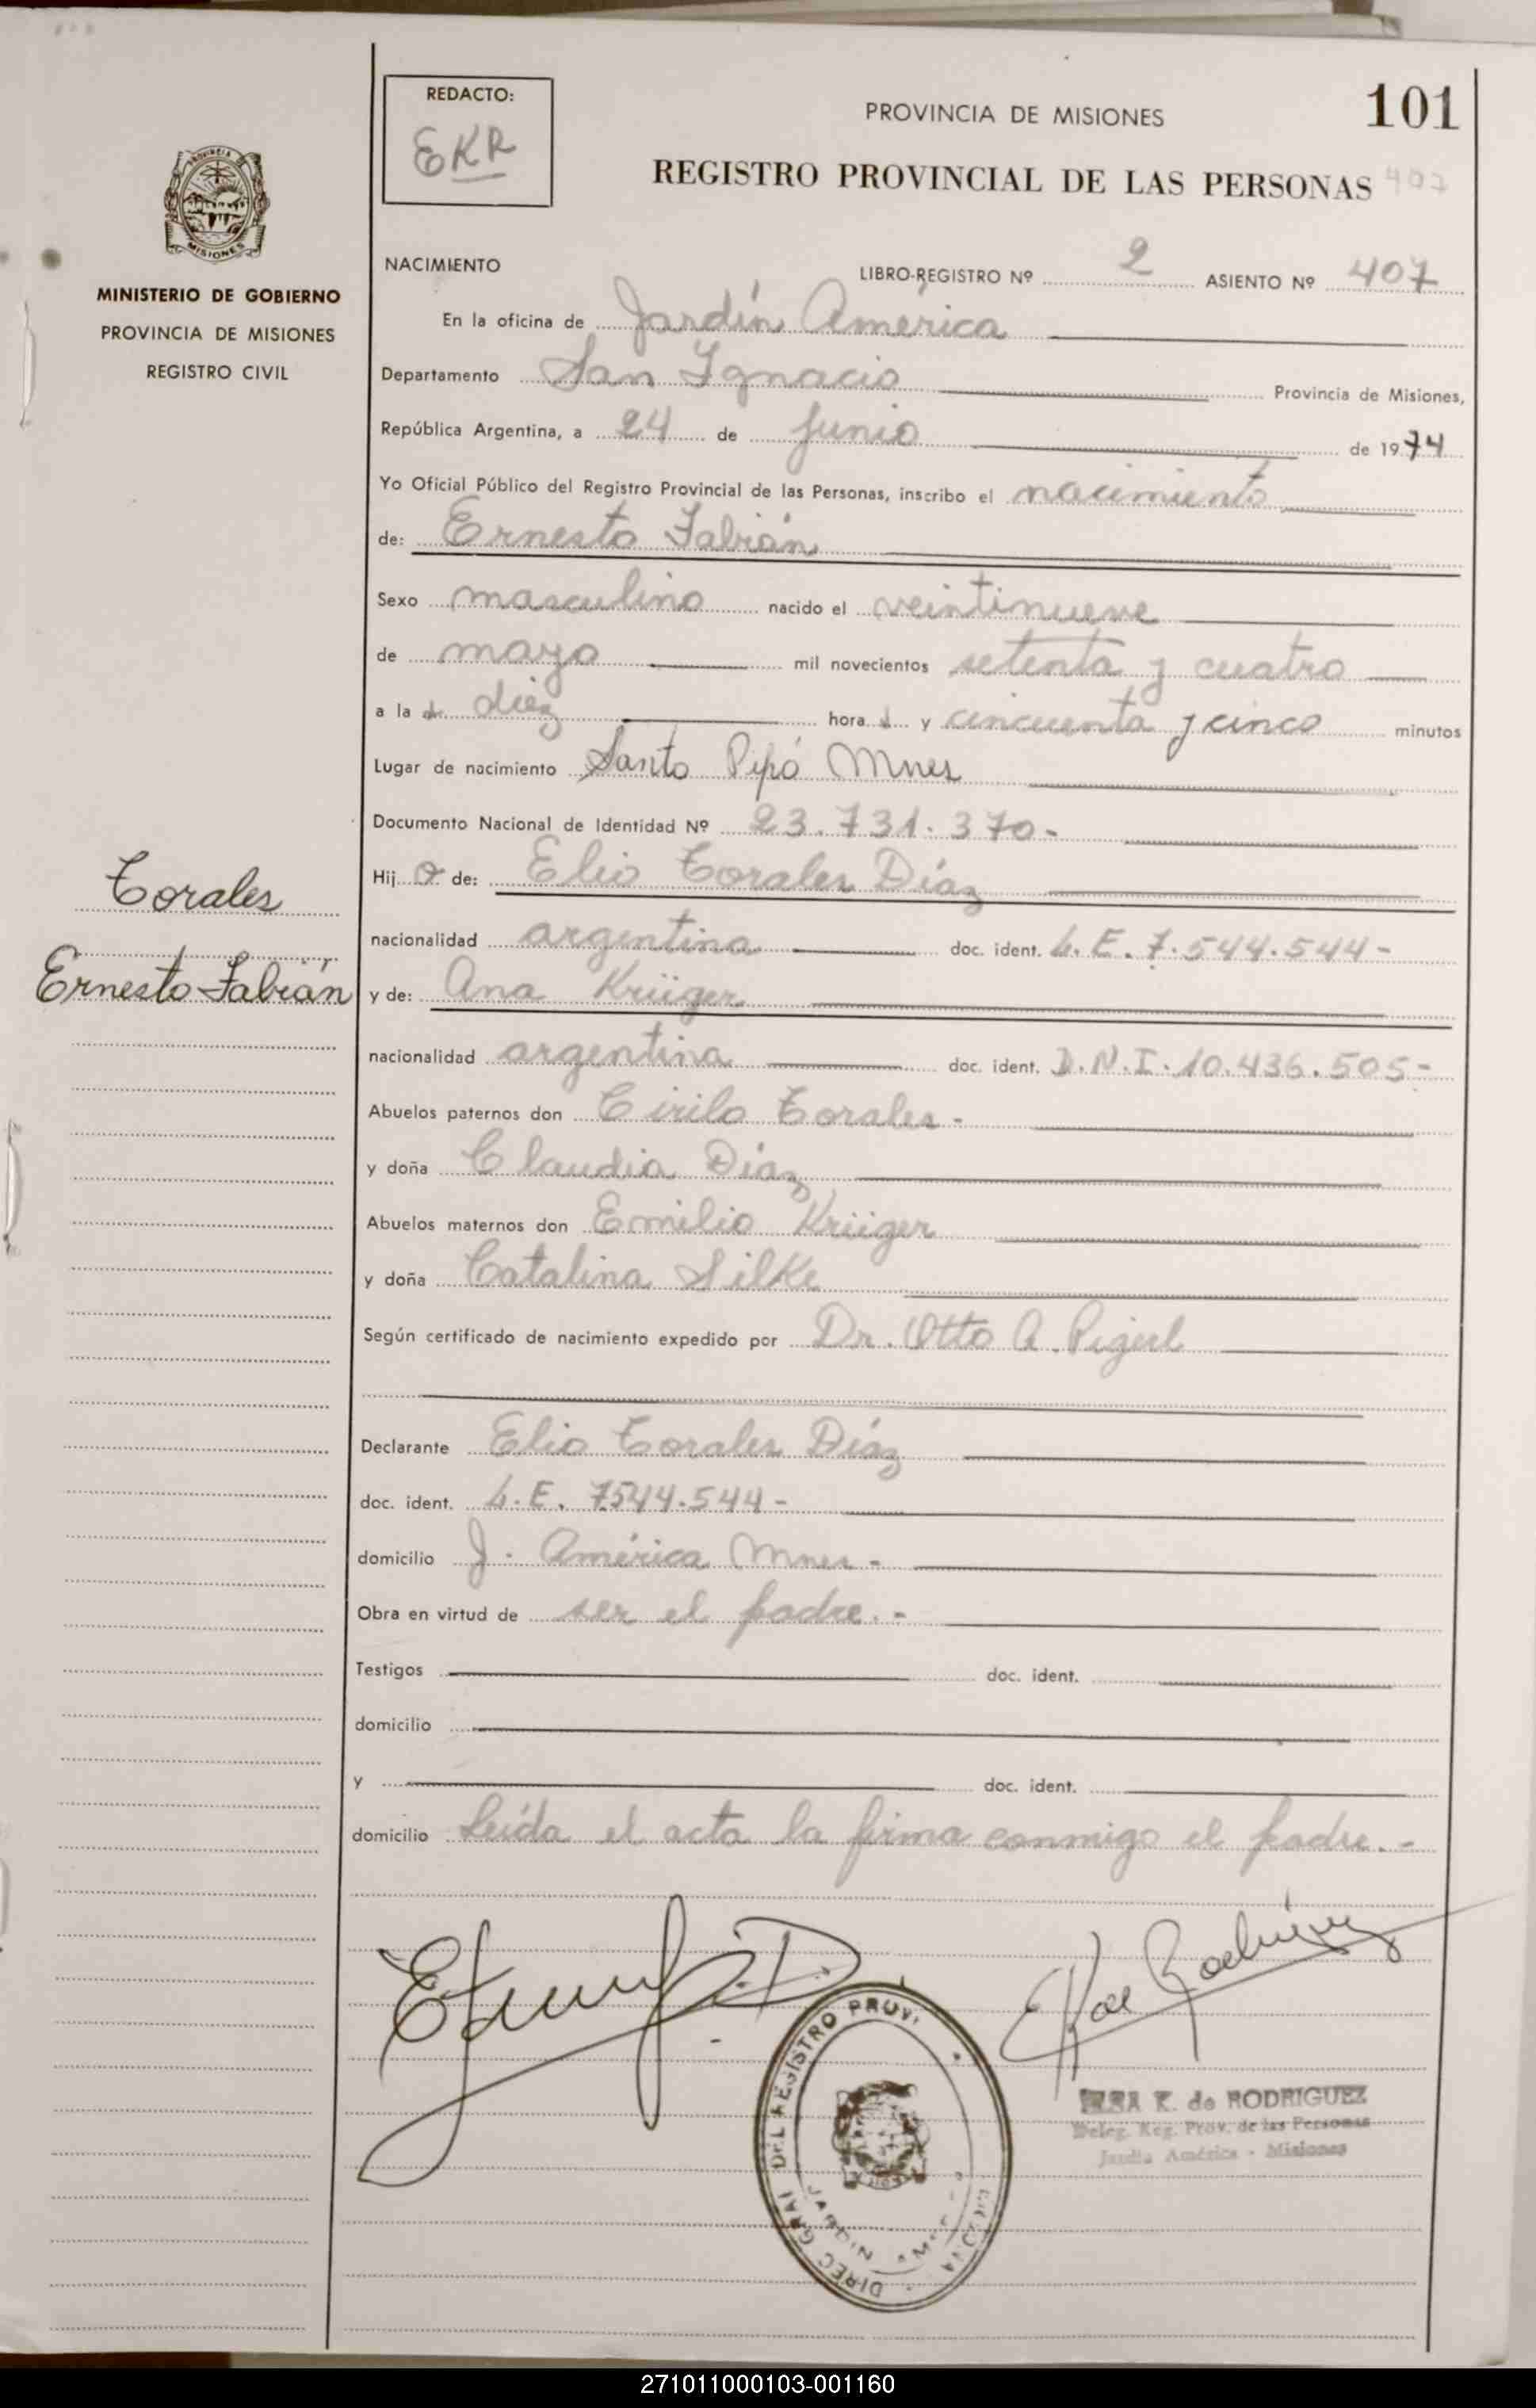 REDACTO:
EKR
PROVINCIA DE MISIONES
101
REGISTRO PROVINCIAL DE LAS PERSONAS 407
MINISTERIO DE GOBIERNO
PROVINCIA DE MISIONES
REGISTRO CIVIL
NACIMIENTO LIBRO-REGISTRO Nº 2 ASIENTO Nº 407
En la oficina de Jardín América
Departamento San Ignacio Provincia de Misiones,
República Argentina, a 24 de junio de 1974
Yo Oficial Público del Registro Provincial de las Personas, inscribo el nacimiento
de: Ernesto Fabián
Sexo masculino nacido el veintinueve
de mayo mil novecientos setenta y cuatro
a la s diez hora s y cincuenta y cinco minutos
Lugar de nacimiento Santo Pipó Mnes
Documento Nacional de Identidad Nº 23.731.370-
Hij o de: Elio Torales Díaz
Torales
nacionalidad argentina doc. ident. L.E. 7.544.544-
Ernesto Fabián
y de: Ana Krüger
nacionalidad argentina doc. ident. D.N.I. 10.436.505-
Abuelos paternos don Cirilo Torales-
y doña Claudia Díaz
Abuelos maternos don Emilio Krüger
y doña Catalina Silke
Según certificado de nacimiento expedido por Dr. Otto A. Pigerl
Declarante Elio Torales Díaz
doc. ident. L.E. 7544.544-
domicilio J. América Mnes-
Obra en virtud de ser el padre.-
Testigos doc. ident.
domicilio
y doc. ident.
domicilio Leída el acta la firma conmigo el padre.-
DIREC GRAL DEL REGISTRO PROVI
JARDIN
K. de RODRIGUEZ
Deleg. Reg. Prov. de las Personas
Jardín América - Misiones
271011000103-001160